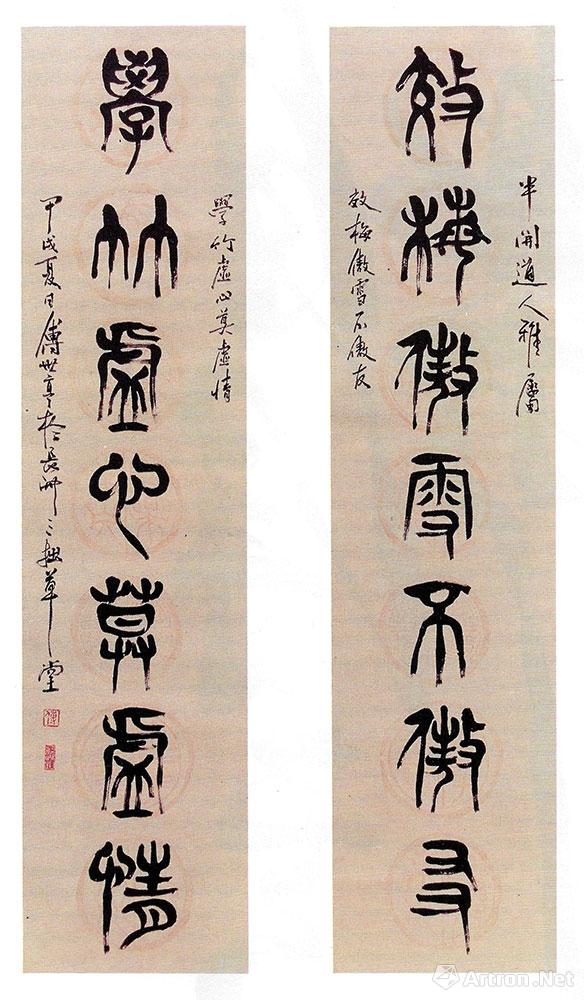 半開道人雅屬
效梅傲雪不傲友
效梅傲雪不傲友
學竹虛心莫虛情
學竹虛心莫虛情
甲戌夏日傅世亨於長州三草堂
Artron.Net